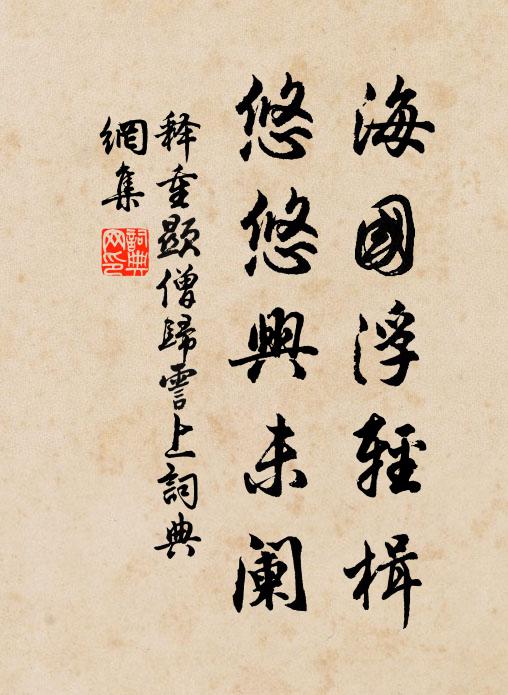 海國浮輕楫
悠悠興未阑
释重顯僧歸霅上詞典
網集
詞典
网印